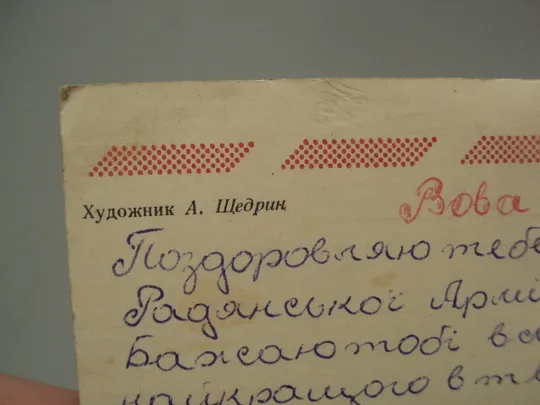 Художник А. Щедрин
Вова
Поздоровляю тебе
Радянської Армі
Бажаю тобі вс
найкращого в тв